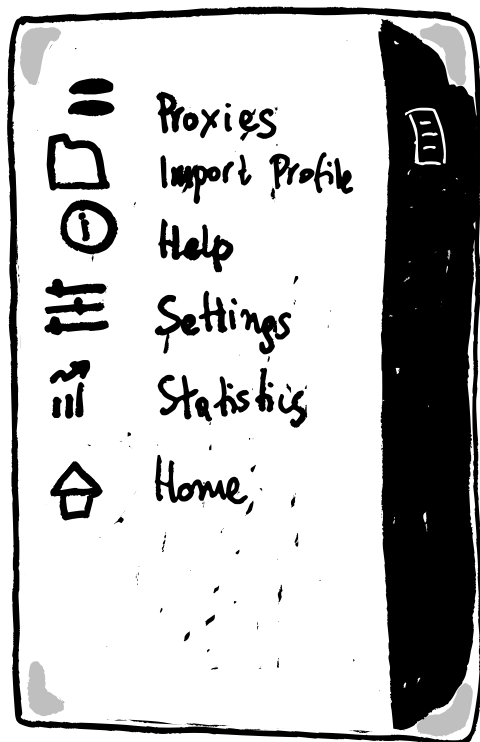 Proxies
Import Profile
Help
Settings
Statistics
Home